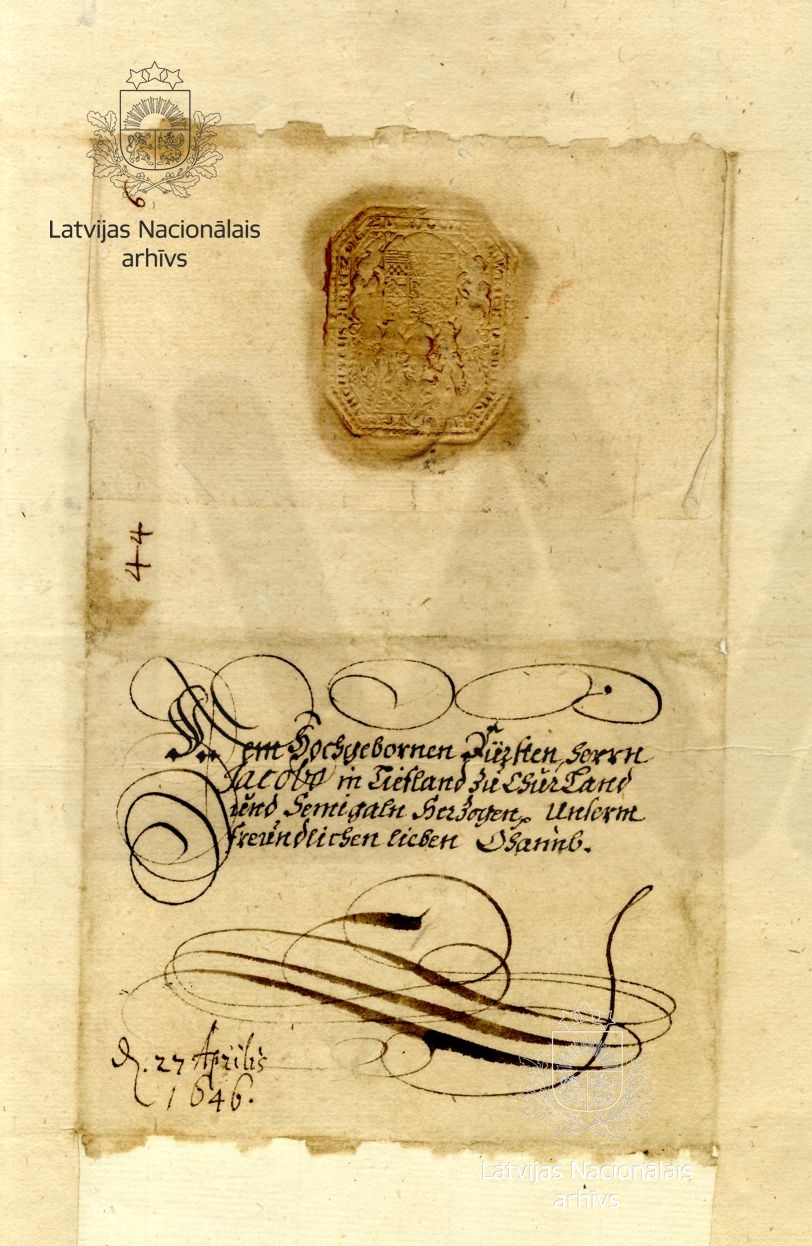 Latvijas Nacionālais
arhīvs
6
44
Dem Hochgebornen Fürsten, Herrn
Jacobo in Liefland zu Churland
und Semigaln Hertzogen, Unserm
freündlichen lieben Ohaimb.
d. 27 Aprilis
1646.
Latvijas Nacionālais
arhīvs